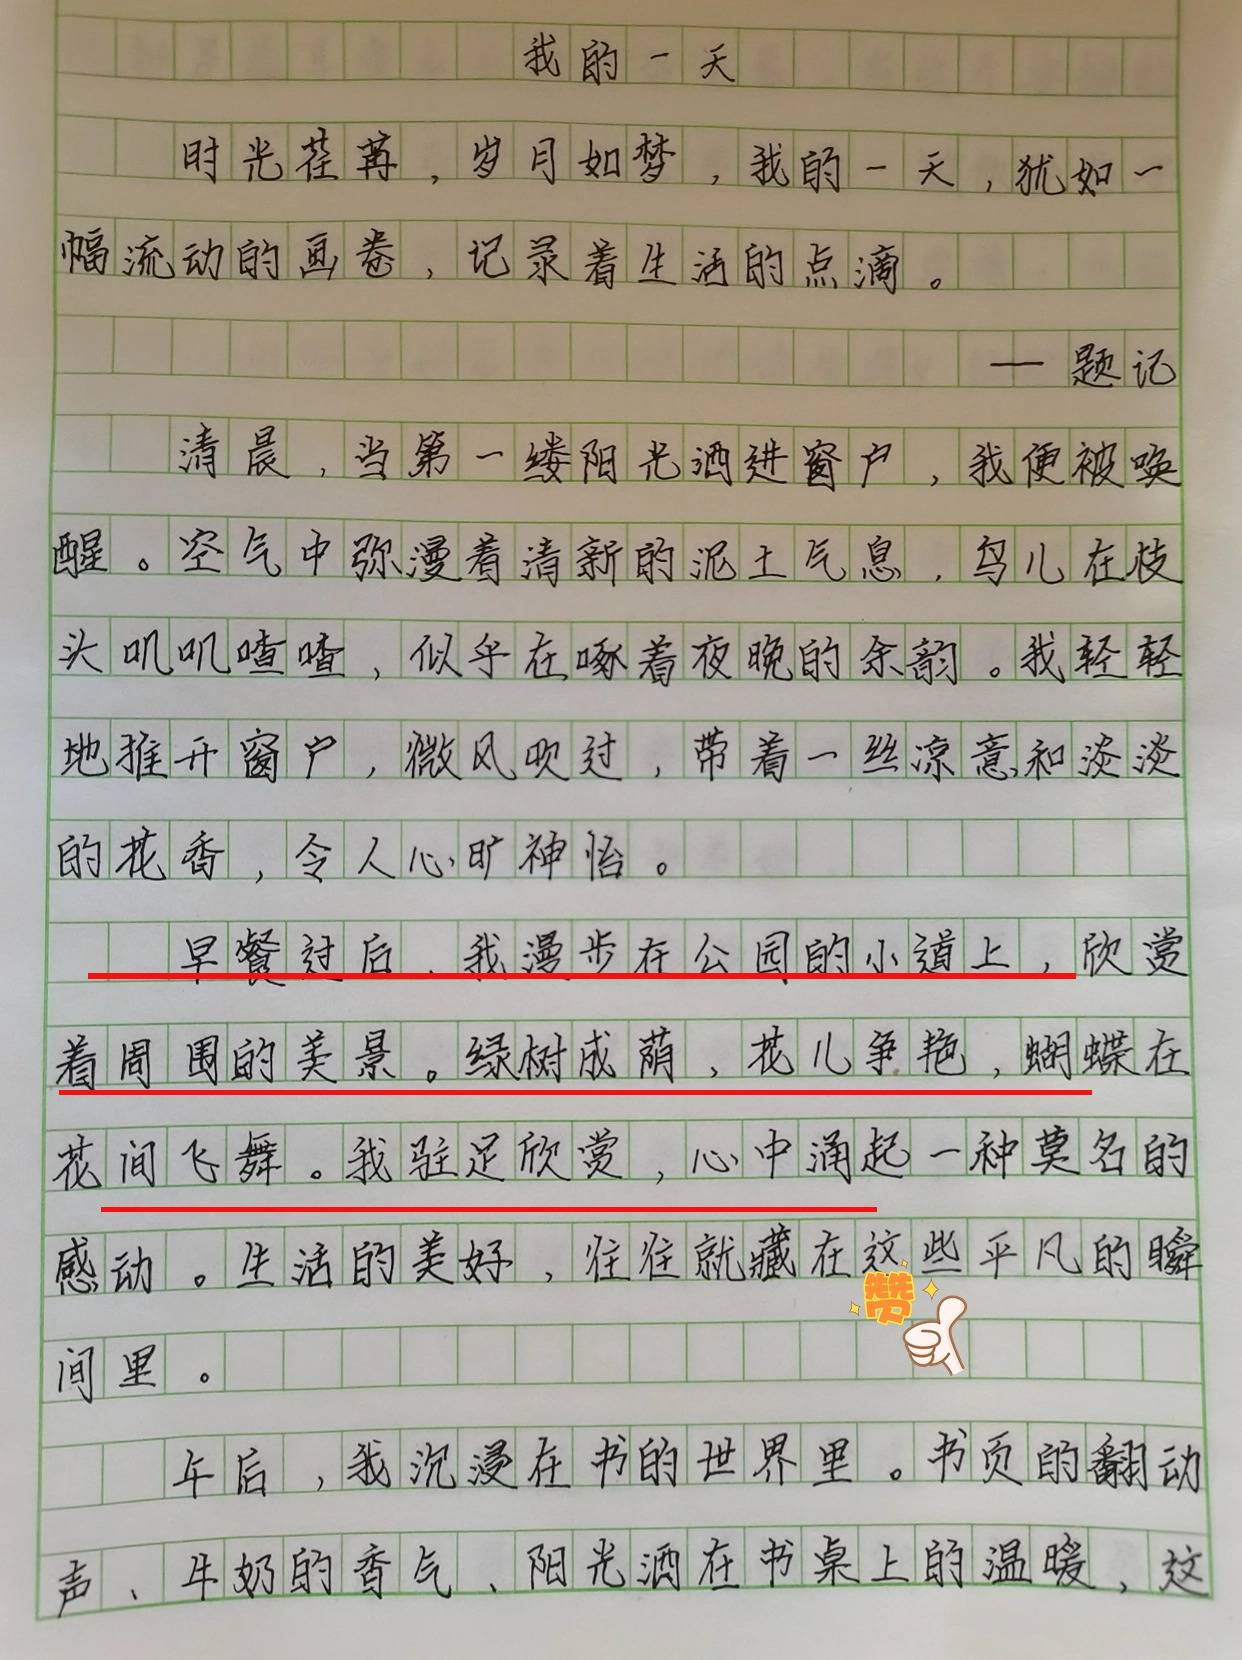 我的一天
时光荏苒，岁月如梦，我的一天，犹如一
幅流动的画卷，记录着生活的点滴。
——题记
清晨，当第一缕阳光洒进窗户，我便被唤
醒。空气中弥漫着清新的泥土气息，鸟儿在枝
头叽叽喳喳，似乎在啄着夜晚的余韵。我轻轻
地推开窗户，微风吹过，带着一丝凉意和淡淡
的花香，令人心旷神怡。
早餐过后，我漫步在公园的小道上，欣赏
着周围的美景。绿树成荫，花儿争艳，蝴蝶在
花间飞舞。我驻足欣赏，心中涌起一种莫名的
感动。生活的美好，往往就藏在这些平凡的瞬
赞
间里。
午后，我沉浸在书的世界里。书页的翻动
声、牛奶的香气、阳光洒在书桌上的温暖，这